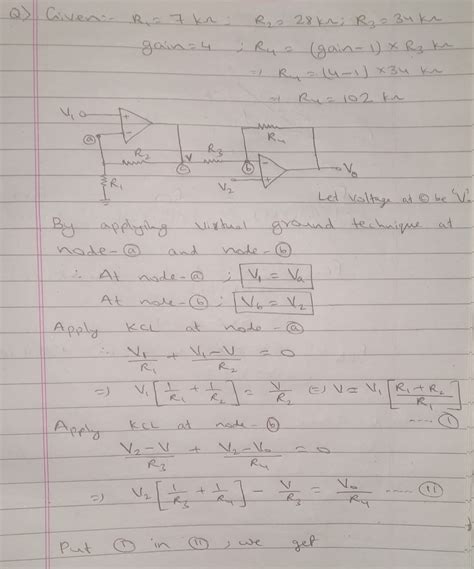 Q) Given:- R₁ = 7 kΩ ; R₂ = 28 kΩ ; R₃ = 34 kΩ
gain = 4 ; R₄ = (gain-1) × R₃ kΩ
⇒ R₄ = (4-1) × 34 kΩ
⇒ R₄ = 102 kΩ
V₁
+
-
ⓐ
R₂
V
ⓒ
R₃
ⓑ
R₄
-
+
V₀
R₁
V₂
Let Voltage at ⓒ be 'V'.
By applying virtual ground technique at
node-ⓐ and node-ⓑ
∴ At node-ⓐ ; V₁ = Va
At node-ⓑ ; Vb = V₂
Apply KCL at node-ⓐ
∴ V₁/R₁ + (V₁-V)/R₂ = 0
⇒ V₁[1/R₁ + 1/R₂] = V/R₂ ⇒ V = V₁[(R₁+R₂)/R₁]
---- Ⓘ
Apply KCL at node-ⓑ
(V₂-V)/R₃ + (V₂-V₀)/R₄ = 0
⇒ V₂[1/R₃ + 1/R₄] - V/R₃ = V₀/R₄ ---- (II)
Put Ⓘ in (II), we get